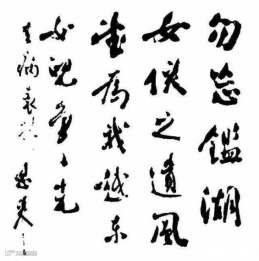 勿忘鑑湖
女俠之遺風
望為我越東
女兒爭光
去病表妹 恩來